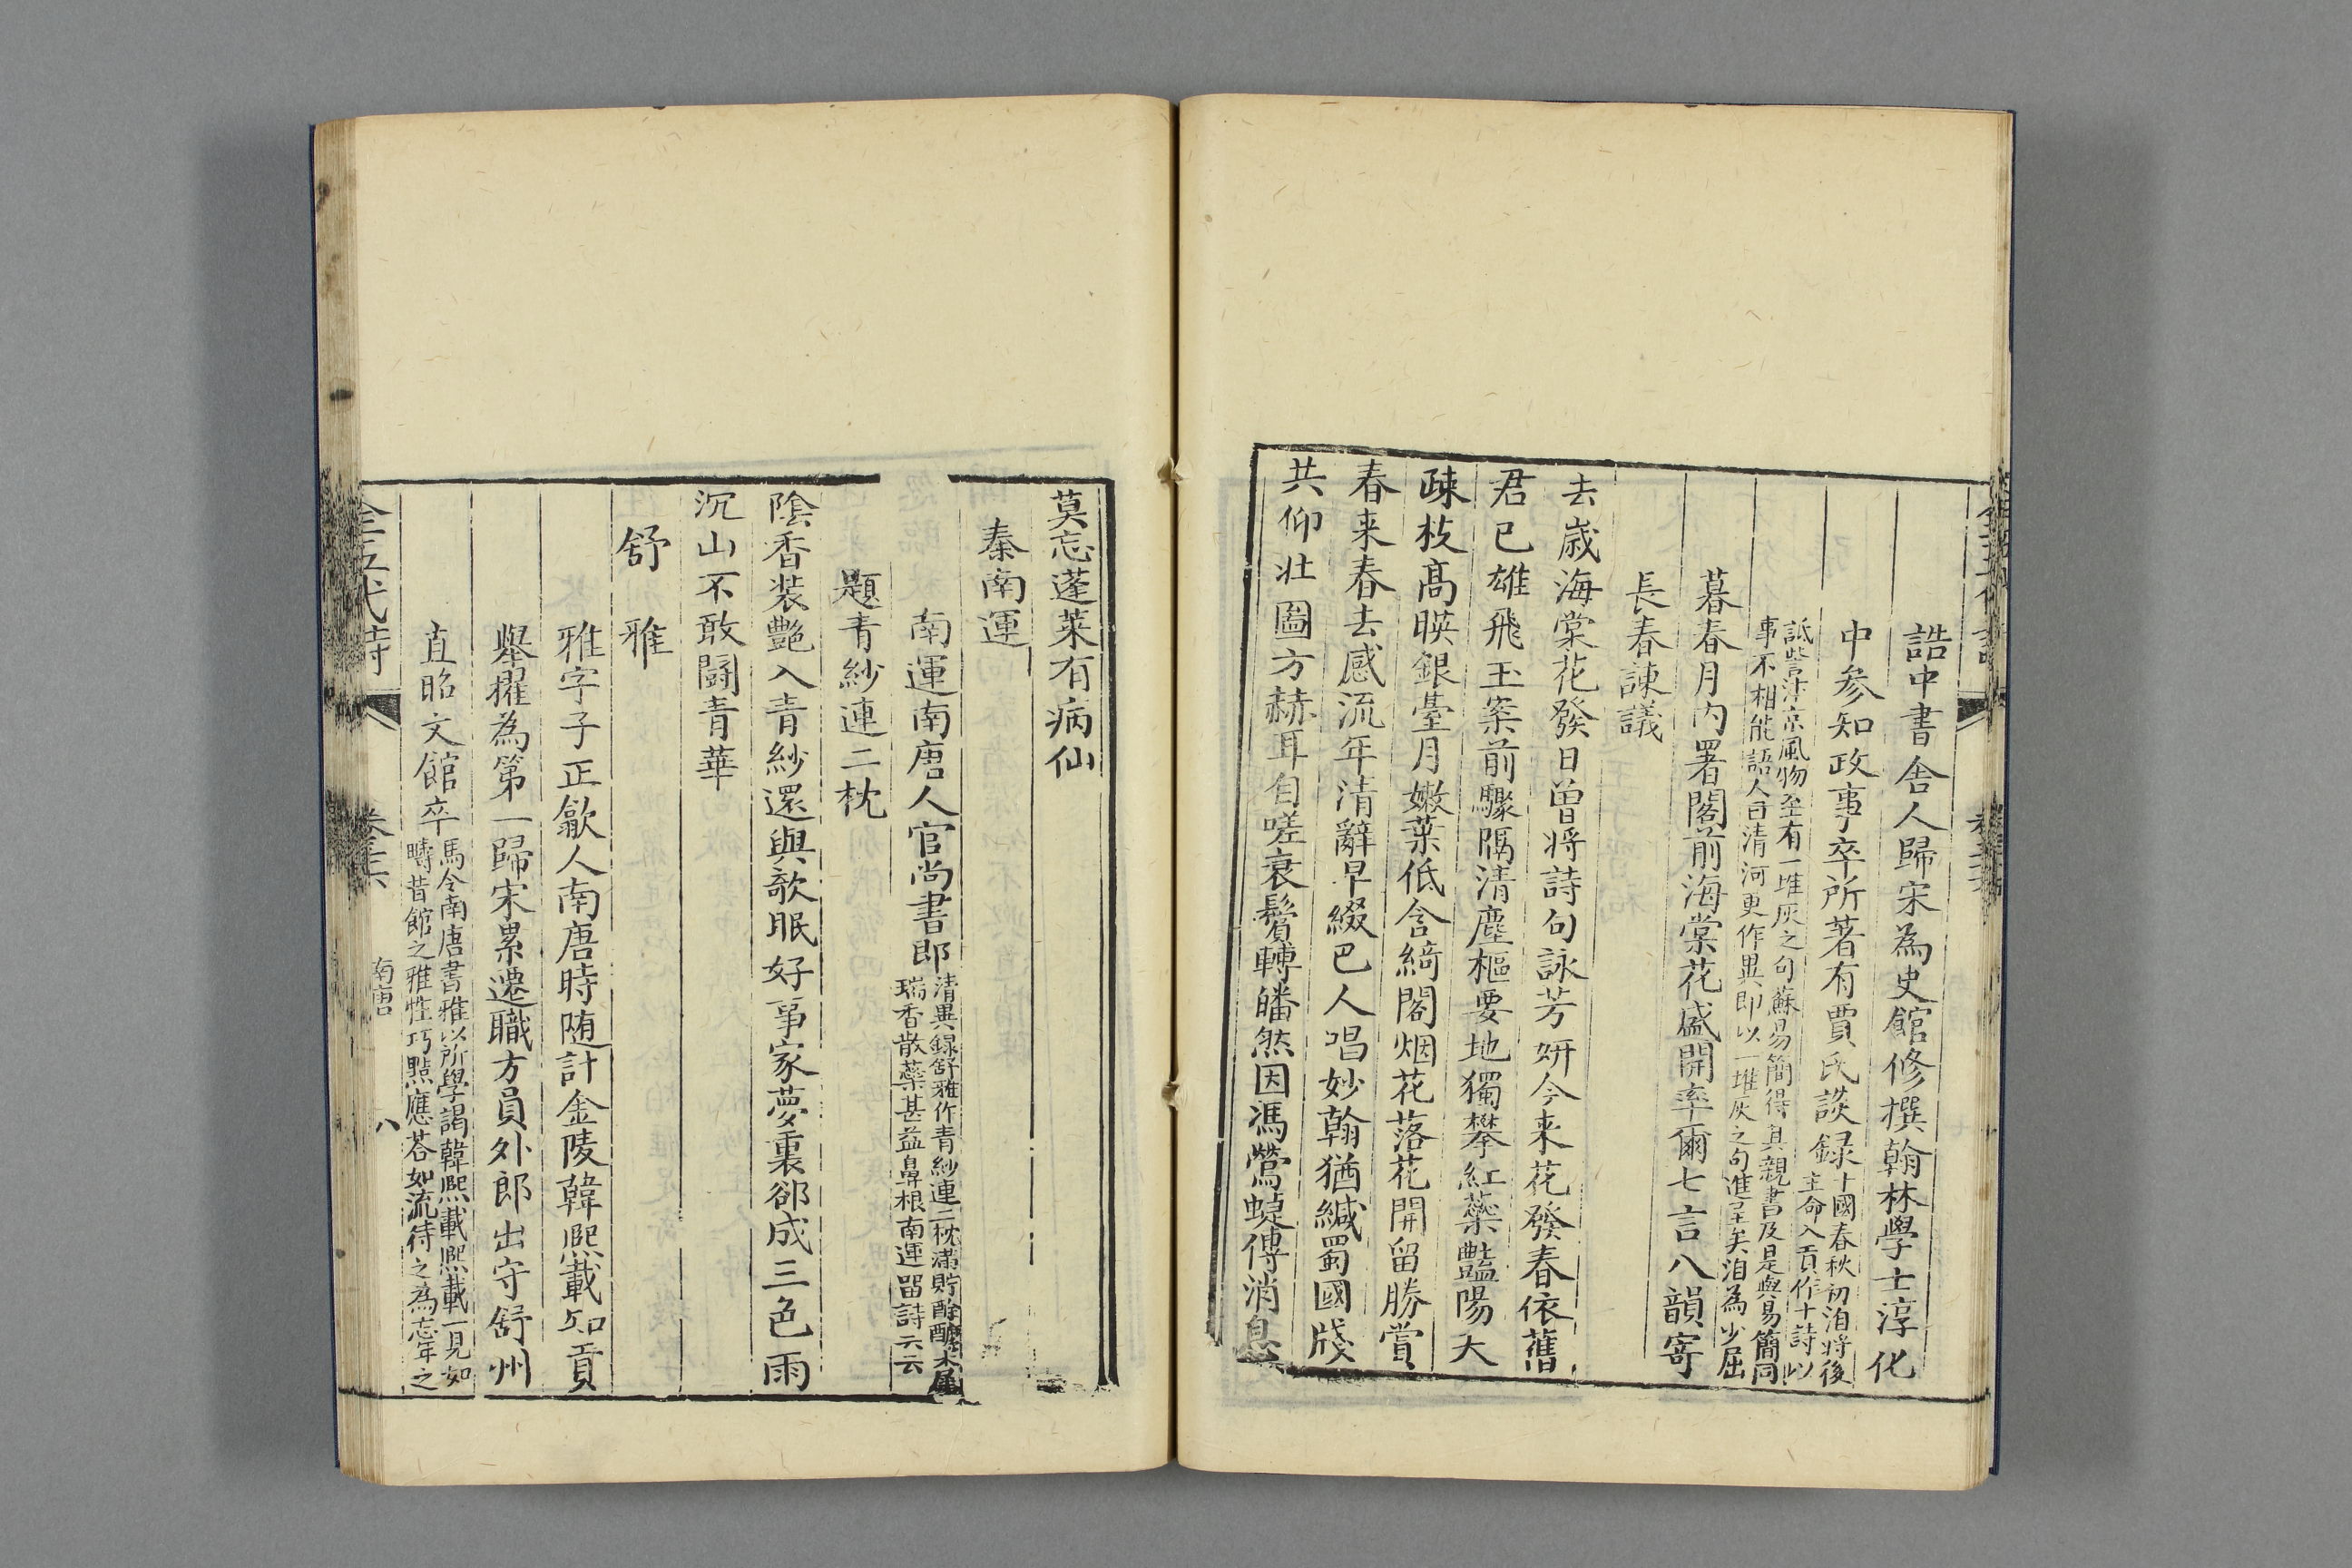 誥中書舍人歸宋為史館修撰翰林學士淳化
中參知政事卒所著有賈氏談録
十國春秋初洎將後
主命入貢作十詩以
詆訾汴京風物至有一堆灰之句蘇易簡得其親書及是與易簡同
事不相能語人曰清河更作異即以一堆灰之句進呈矣洎為少屈
暮春月内署閣前海棠花盛開率爾七言八韻寄
長春諫議
去歲海棠花發日曾將詩句詠芳妍今来花發春依舊
君已雄飛玉案前驟隔清塵樞要地獨攀紅蘂豔陽天
疎枝高映銀臺月嫩葉低含綺閣烟花落花開留勝賞
春来春去感流年清辭早綴巴人唱妙翰猶緘蜀國牋
共仰壯圖方赫耳自嗟衰鬢轉皤然因馮鶯蜨傳消息
莫忘蓬萊有病仙
秦南運
南運南唐人官尚書郎
清異録舒雅作青紗連二枕滿貯酴醾木犀
瑞香散蘂甚益鼻根南運留詩云云
題青紗連二枕
陰香装艷入青紗還與欹眠好事家夢裏郤成三色雨
沉山不敢鬬青華
舒雅
雅字子正歙人南唐時随計金陵韓熈載知貢
舉擢為第一歸宋累遷職方員外郎出守舒州
直昭文館卒
馬令南唐書雅以所學謁韓熈載熈載一見如
疇昔館之雅性巧黠應荅如流待之為忘年之
全五代詩
南唐
八